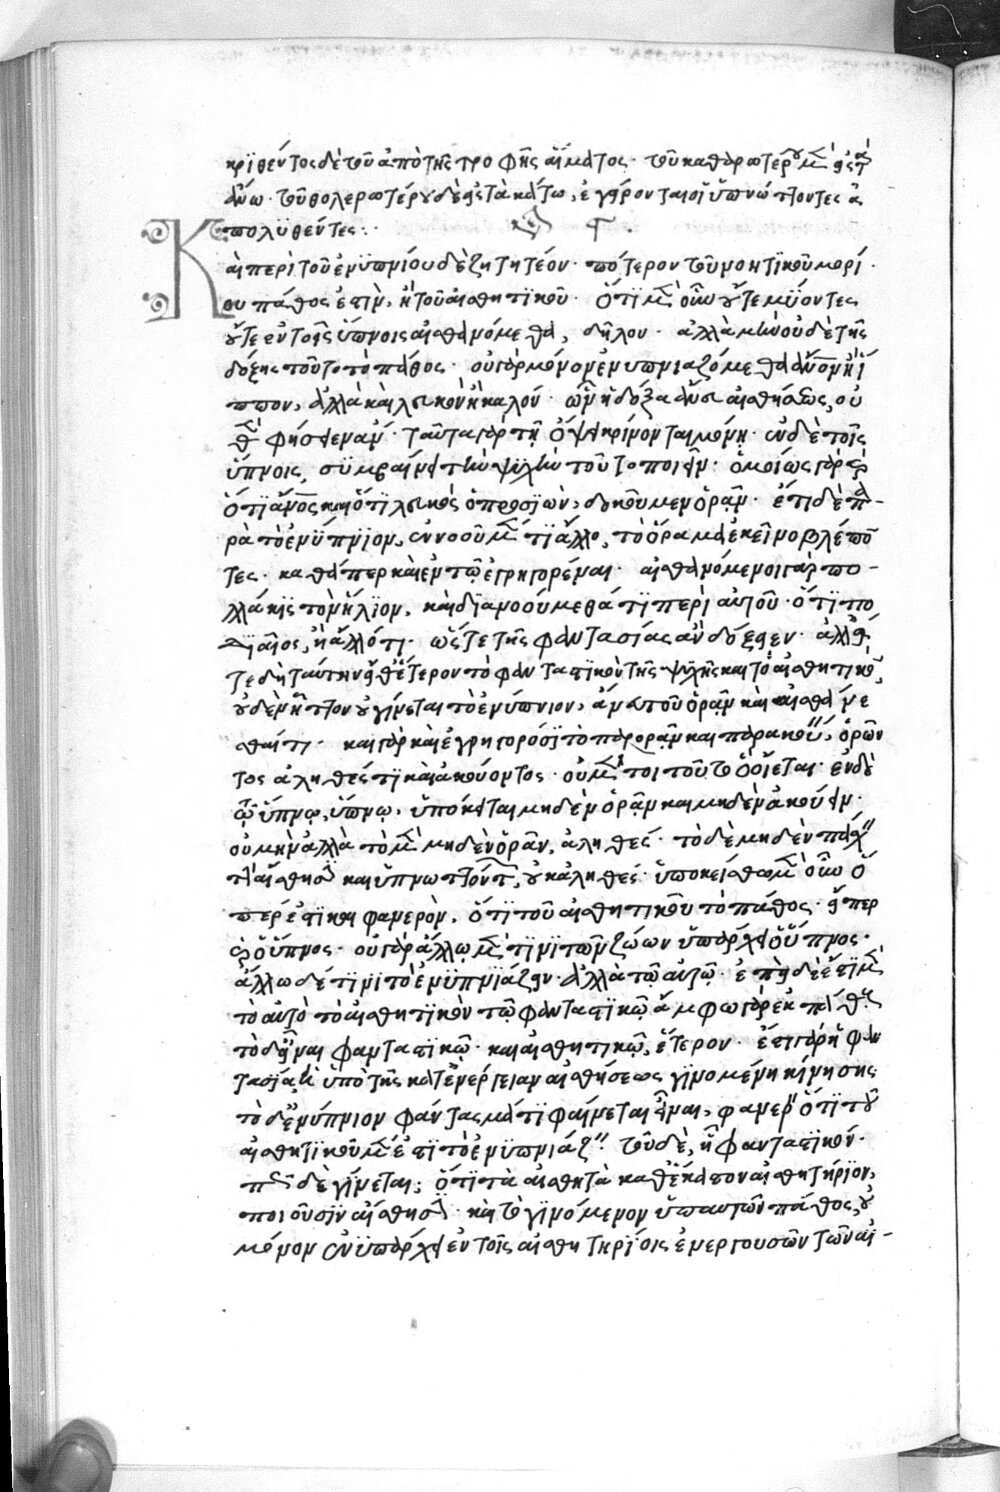 κριθέντος δὲ τοῦ ἀπὸ τῆς τροφῆς αἵματος· τοῦ καθαρωτέρου μὲν εἰς τὰ
ἄνω· τοῦ θολερωτέρου δὲ εἰς τὰ κάτω, ἐγείρονται οἱ ὑπνώττοντες ἀ
πολυθέντες:
Καὶ περὶ τοῦ ἐνυπνίου δὲ ζητητέον· πότερον τοῦ νοητικοῦ μορί
ου πάθος ἐστὶν, ἢ τοῦ αἰσθητικοῦ· ὅτι μὲν οὖν οὔτε μύοντες
οὔτε ἐν τοῖς ὕπνοις αἰσθανόμεθα, δῆλον· ἀλλὰ μὴν οὐδὲ τῆς
δόξης τοῦτο τὸ πάθος· οὐ γὰρ μόνον ἐνυπνιαζόμεθα ἄνον ἢ ἵ
ππον, ἀλλὰ καὶ λευκὸν ἢ καλόν· ὧν ἡ δόξα ἄνευ αἰσθήσεως, οὐ
φήσειεν ἄν· ταῦτα γὰρ τῇ ὄψει κρίνονται μόνῃ· οὐδὲ τοῖς
ὕπνοις, συμβαίνει τὴν ψυχὴν τοῦτο ποιεῖν· ὁμοίως γὰρ
ὅτι ἄνος καὶ ὅτι λευκὸς ὁ προσιὼν, δοκοῦμεν ὁρᾶν· ἔτι δὲ πα-
ρὰ τὸ ἐνύπνιον, ἐννοοῦμέν τι ἄλλο, τὸ ὅραμα ἐκεῖνο βλέπον
τες· καθάπερ καὶ ἐν τῷ ἐγρηγορέναι· αἰσθανόμενοι γὰρ πο-
λλάκις τὸν ἥλιον, καὶ διανοούμεθά τι περὶ αὐτοῦ· ὅτι πο
διαῖος, ἢ ἄλλό τι· ὥστε τῆς φαντασίας ἂν δόξειεν·
τε δὴ ταύτην εἴθ' ἕτερον τὸ φανταστικὸν τῆς ψυχῆς καὶ τὸ αἰσθητικόν,
οὐδὲν ἧττον οὐ γίνεται τὸ ἐνύπνιον, ἄνευ τοῦ ὁρᾶν καὶ αἰσθάνε
σθαί τι· καὶ γὰρ καὶ ἐγρηγορόσι τὸ παρορᾶν καὶ παρακούειν, ὁρῶν
τος ἀληθές τι καὶ ἀκούοντος· οὐ μέντοι τοῦτο ὃ οἴεται· ἐν δὲ
τῷ ὕπνῳ, ὕπνῳ, ὑπόκειται μηδὲν ὁρᾶν καὶ μηδὲν ἀκούειν·
οὐ μὴν ἀλλὰ τὸ μὲν μηδὲν ὁρᾶν, ἀληθές· τὸ δὲ μηδὲν πάσχειν
τὴν αἴσθησιν καὶ ὑπνώττοντα, οὐκ ἀληθές· ὑποκείσθω μὲν οὖν ὅ
περ ἐστὶ καὶ φανερὸν, ὅτι τοῦ αἰσθητικοῦ τὸ πάθος· εἴπερ
καὶ ὁ ὕπνος· οὐ γὰρ ἄλλῳ μέν τινι τῶν ζώων ὑπάρχει ὁ ὕπνος·
ἄλλω δέ τινι τὸ ἐνυπνιάζειν· ἀλλὰ τῷ αὐτῷ· ἐπεὶ δὲ ἐστὶ μὲν
τὸ αὐτὸ τὸ αἰσθητικὸν τῷ φανταστικῷ ἄμφω γὰρ ἐκ πάθους
τὸ δ' εἶναι φανταστικῷ· καὶ αἰσθητικῷ, ἕτερον· ἔστι γὰρ ἡ φαν
τασία, ἡ ὑπὸ τῆς κατ' ἐνέργειαν αἰσθήσεως γινομένη κίνησις
τὸ δ' ἐνύπνιον φάντασμά τι φαίνεται εἶναι, φανερὸν ὅτι τοῦ
αἰσθητικοῦ μέν ἐστι τὸ ἐνυπνιάζειν τοῦ δὲ, ᾗ φανταστικόν·
πῶς δὲ γίνεται; ὅτι τὰ αἰσθητὰ καθ' ἕκαστον αἰσθητήριον,
ποιοῦσιν αἴσθησιν· καὶ τὸ γινόμενον ὑπ' αὐτῶν πάθος, οὐ
μόνον ἐνυπάρχει ἐν τοῖς αἰσθητηρίοις ἐνεργουσῶν τῶν αἰ-